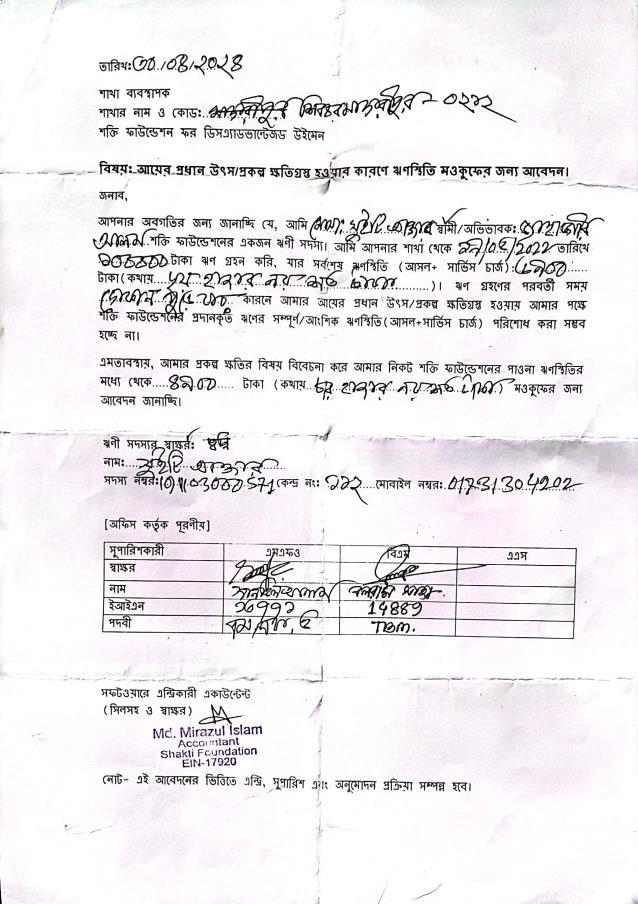 তারিখ: ৩০/০৪/২০২৪
শাখা ব্যবস্থাপক
শাখার নাম ও কোড: মাদারীপুর - ০২১২
শক্তি ফাউন্ডেশন ফর ডিসএ্যাডভান্টেজড উইমেন
বিষয়: আয়ের প্রধান উৎস/প্রকল্প ক্ষতিগ্রস্থ হওয়ার কারণে ঋণস্থিতি মওকুফের জন্য আবেদন।
জনাব,
আপনার অবগতির জন্য জানাচ্ছি যে, আমি মোসা: সুইটি আক্তার স্বামী/অভিভাবক: জাহাঙ্গীর
আলম শক্তি ফাউন্ডেশনের একজন ঋণী সদস্য। আমি আপনার শাখা থেকে /২০২২ তারিখে
টাকা ঋণ গ্রহন করি, যার সর্বশেষ ঋণস্থিতি (আসল+ সার্ভিস চার্জ):
টাকা(কথায় হাজার নয় শত টাকা)। ঋণ গ্রহণের পরবর্তী সময়
কারনে আমার আয়ের প্রধান উৎস/প্রকল্প ক্ষতিগ্রস্থ হওয়ায় আমার পক্ষে
শক্তি ফাউন্ডেশনের প্রদানকৃত ঋণের সম্পূর্ণ/আংশিক ঋণস্থিতি(আসল+সার্ভিস চার্জ) পরিশোধ করা সম্ভব
হচ্ছে না।
এমতাবস্থায়, আমার প্রকল্প ক্ষতির বিষয় বিবেচনা করে আমার নিকট শক্তি ফাউন্ডেশনের পাওনা ঋণস্থিতির
মধ্যে থেকে ৪৯০০ টাকা (কথায় চার হাজার নয় শত টাকা) মওকুফের জন্য
আবেদন জানাচ্ছি।
ঋণী সদস্যর স্বাক্ষর:
নাম: সুইটি আক্তার
সদস্য নম্বর: কেন্দ্র নং: ১১২ মোবাইল নম্বর: 01731304202
[অফিস কর্তৃক পূরণীয়]
সুপারিশকারী এসএফও বিএম এএস
স্বাক্ষর
নাম
ইআইএন 14889
পদবী TBM.
সফটওয়ারে এন্ট্রিকারী একাউন্টেন্ট
(সিলসহ ও স্বাক্ষর)
Md. Mirazul Islam
Accountant
Shakti Foundation
EIN-17920
নোট- এই আবেদনের ভিত্তিতে এন্ট্রি, সুপারিশ এবং অনুমোদন প্রক্রিয়া সম্পন্ন হবে।